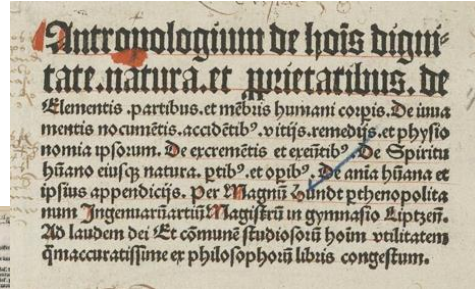 Antropologium de hoīs digni⸗
tate.natura.et ꝓprietatibus. de
Elementis .partibus.et mēbris humani corꝑis.De iuua
mentis nocumētis.accidētibꝰ.vitijs.remedijs.et physio
nomia ipsorum. De excremētis et exeūtibꝰ. De Spiritu
hūano eiusq; natura. ꝑtibꝰ.et opibꝰ. De aīa hūana et
ipsius appendicijs. Per Magnū hundt ꝑthenopolita
num Ingenuarūartiū Magistrū in gymnasio Liptzeń.
Ad laudem dei Et cōmunē studiosorū hoīm vtilitatem
q̄maccuratissime ex philosophorū libris congestum.